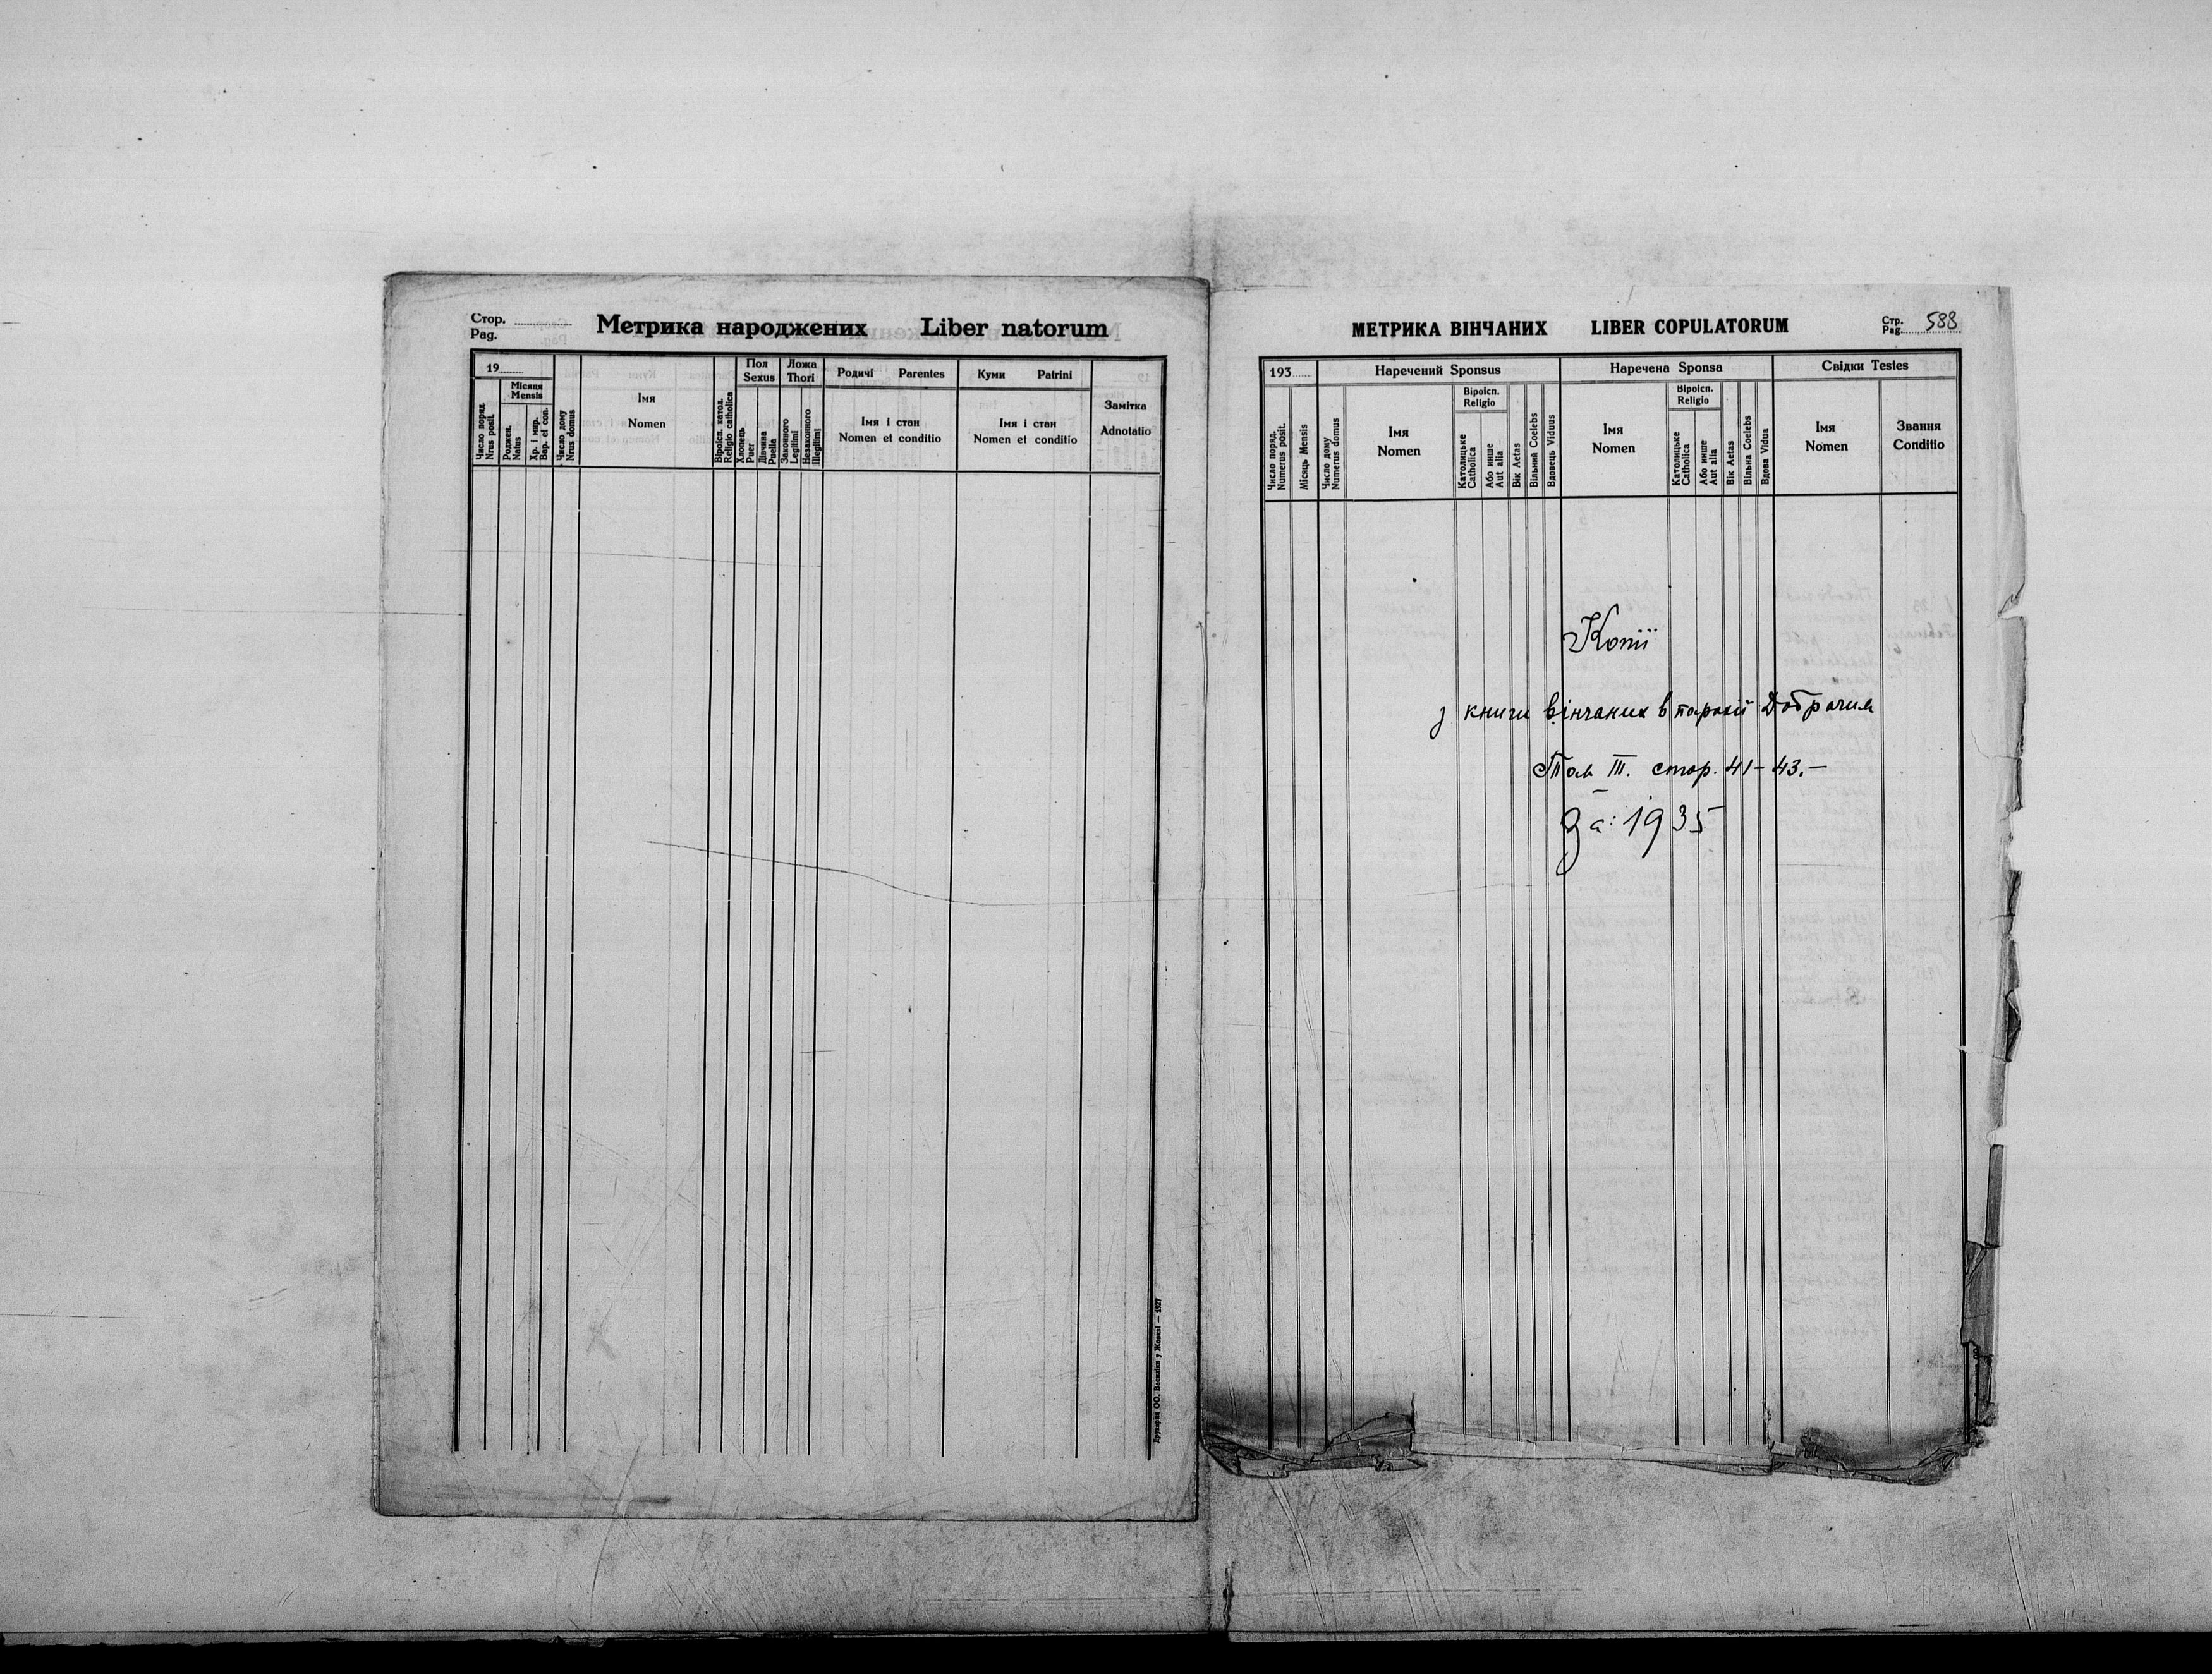 Стор.
Pag.
Метрика народжених Liber natorum
19
Число поряд.
Nrus posit.
Місяця
Mensis
Роджен.
Natus
Хр. і мир.
Bap. et con.
Число дому
Nrus domus
Імя
Nomen
Віроісп. катол.
Religio catholica
Пол
Sexus
Хлопець
Puer
Дівчина
Puella
Ложа
Thori
Законного
Legitimi
Незаконного
Illegitimi
Родичі Parentes
Імя і стан
Nomen et conditio
Куми Patrini
Імя і стан
Nomen et conditio
Замітка
Adnotatio
Друкарня ОО. Василіян у Жовкві — 1927
МЕТРИКА ВІНЧАНИХ LIBER COPULATORUM
Стр.
Pag. 588
193
Число поряд.
Numerus posit.
Місяць Mensis
Число дому
Numerus domus
Наречений Sponsus
Імя
Nomen
Віроісп.
Religio
Католицьке
Catholica
Або инше
Aut alia
Вік Aetas
Вільний Coelebs
Вдовець Viduus
Наречена Sponsa
Імя
Nomen
Віроісп.
Religio
Католицьке
Catholica
Або инше
Aut alia
Вік Aetas
Вільна Coelebs
Вдова Vidua
Свідки Testes
Імя
Nomen
Звання
Conditio
Копії
з книги вінчаних в парохії Добрачин
Том III. стор. 41-43.-
За: 1935